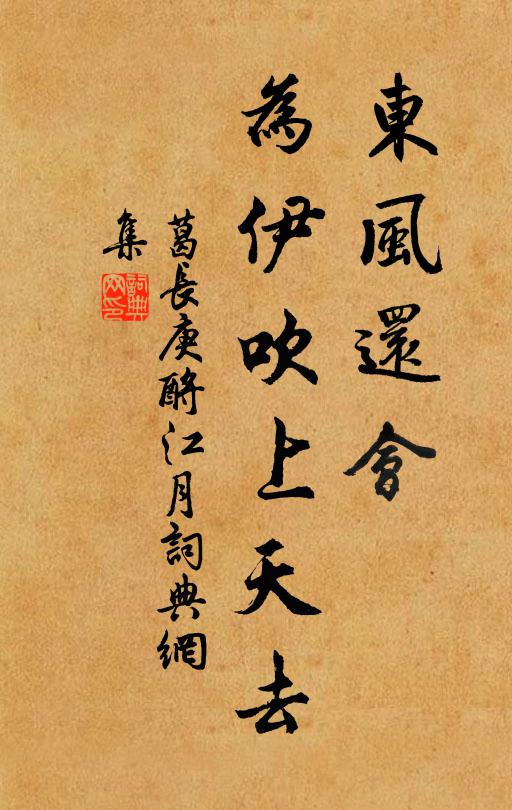 東風還會
為伊吹上天去
葛長庚酹江月詞典網
集
詞典
网印